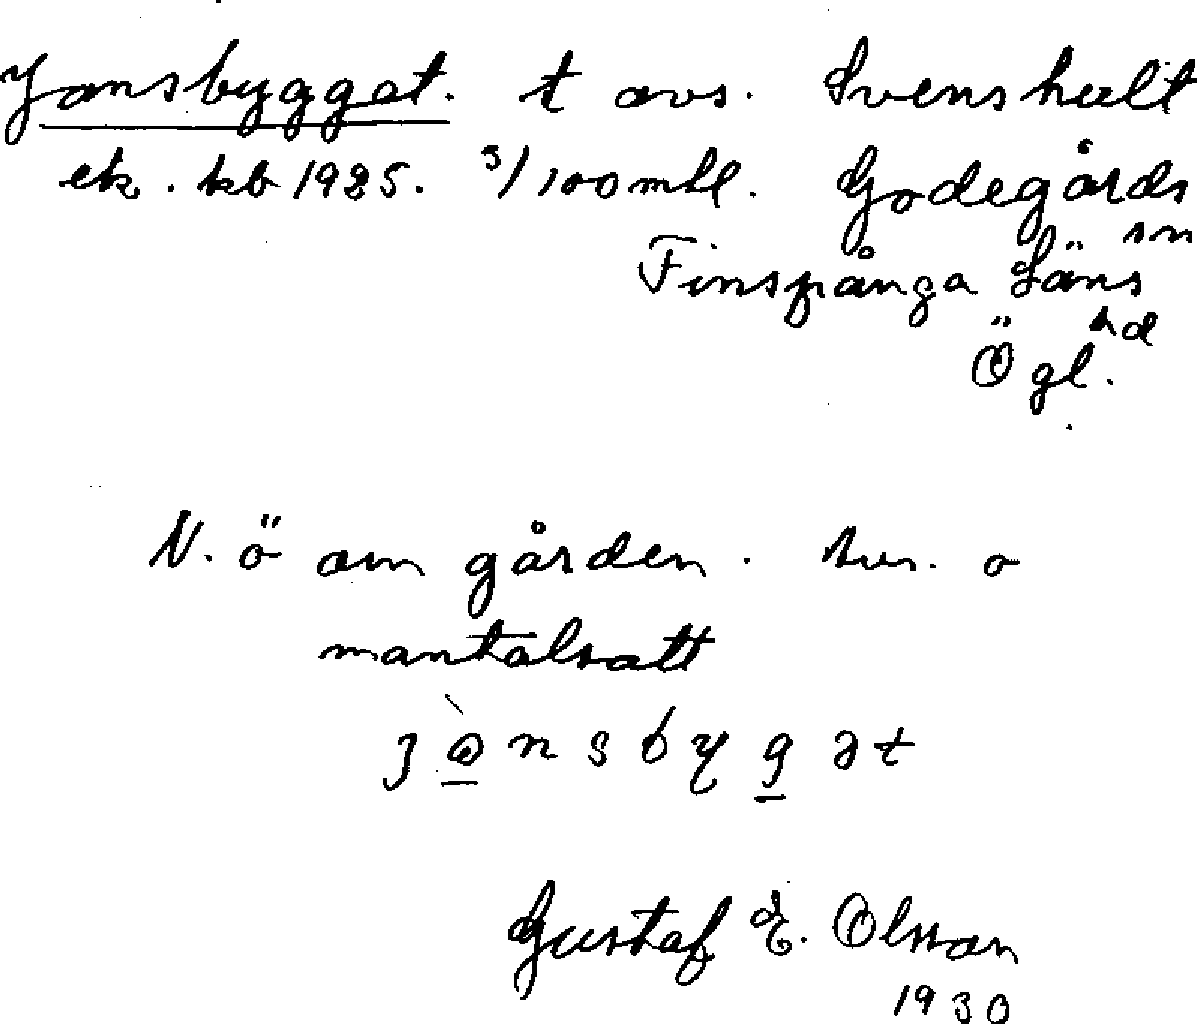 Jansbygget. t avs. Svenshult
ek. kb 1925. 3/100 mtl. Godegårds
sn
Finspånga Läns
hd
Ögl.
N. ö om gården. hus. o
mantalsatt
jònsbygət
Gustaf E. Olsson
1930